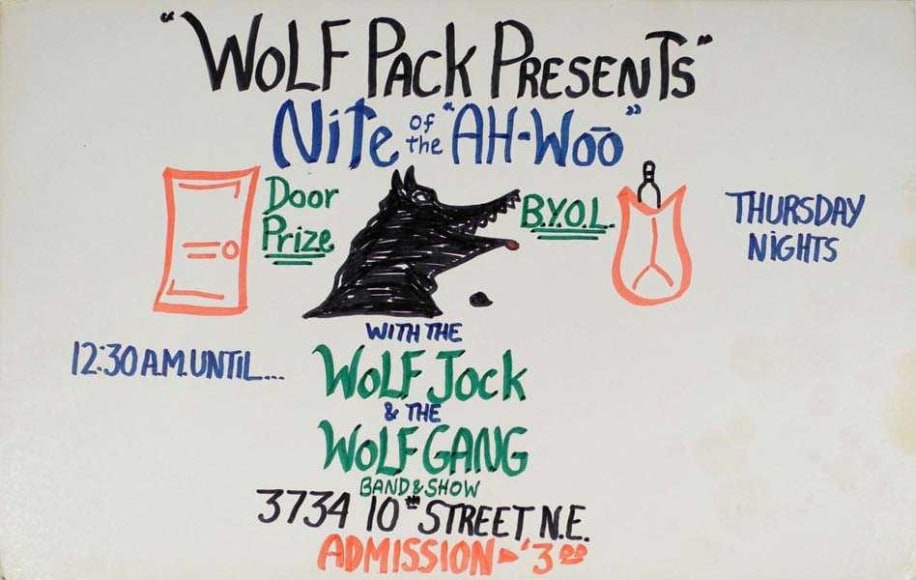 "WOLF PACK PRESENTS"
Nite of the "AH-WOO"
Door Prize
B.Y.O.L.
THURSDAY
NIGHTS
WITH THE
12:30 A.M. UNTIL...
WOLF JOCK
& THE
WOLF GANG
BAND & SHOW
3734 10TH STREET N.E.
ADMISSION $3.00